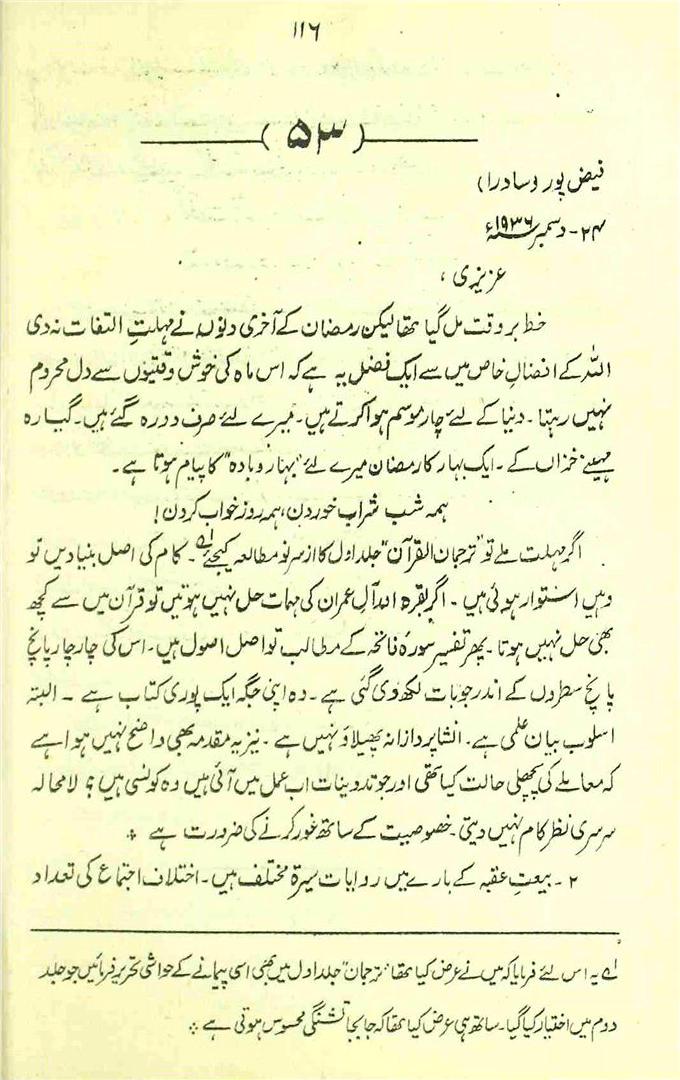 ۱۱۶
(۵۳)
فیض پور (سادرا)
۲۴- دسمبر ۱۹۳۶ء
عزیزی،
خط بر وقت مل گیا تھا لیکن رمضان کے آخری دنوں نے مہلتِ التفات نہ دی
اللہ کے افضالِ خاص میں سے ایک فضل یہ ہے کہ اس ماہ کی خوش وقتیوں سے دل محروم
نہیں رہتا۔ دنیا کے لئے چار موسم ہوا کرتے ہیں۔ میرے لئے صرف دو رہ گئے ہیں۔ گیارہ
مہینے خزاں کے۔ ایک بہار کا رمضان میرے لئے "بہار و بادہ" کا پیام ہوتا ہے۔
ہمہ شب شراب خوردن، ہمہ روز خواب کردن!
اگر مہلت ملے تو "ترجمان القرآن" جلد اول کا از سر نو مطالعہ کیجئے لے۔ کام کی اصل بنیادیں تو
وہیں استوار ہوئی ہیں۔ اگر بقرہ اور آل عمران کی مہمات حل نہیں ہوتیں تو قرآن میں سے کچھ
بھی حل نہیں ہوتا۔ پھر تفسیر سورۂ فاتحہ کے مطالب تو اصل اصول ہیں۔ اس کی چار چار پانچ
پانچ سطروں کے اندر جو بات لکھ دی گئی ہے۔ وہ اپنی جگہ ایک پوری کتاب ہے ۔ البتہ
اسلوب بیان علمی ہے۔ انشا پردازانہ پھیلاؤ نہیں ہے۔ نیز یہ مقدمہ بھی واضح نہیں ہوا ہے
کہ معاملے کی پچھلی حالت کیا تھی اور جو تدوینات اب عمل میں آئی ہیں وہ کونسی ہیں؟ لا محالہ
سرسری نظر کام نہیں دیتی۔ خصوصیت کے ساتھ غور کرنے کی ضرورت ہے ٭
۲ ۔ بیعتِ عقبہ کے بارے میں روایات سیرۃ مختلف ہیں۔ اختلاف اجتماع کی تعداد
لے یہ اس لئے فرمایا کہ میں نے عرض کیا تھا "ترجمان" جلد اول میں بھی اسی پیمانے کے حواشی تحریر فرمائیں جو جلد
دوم میں اختیار کیا گیا۔ ساتھ ہی عرض کیا تھا کہ جا بجا تشنگی محسوس ہوتی ہے ٭